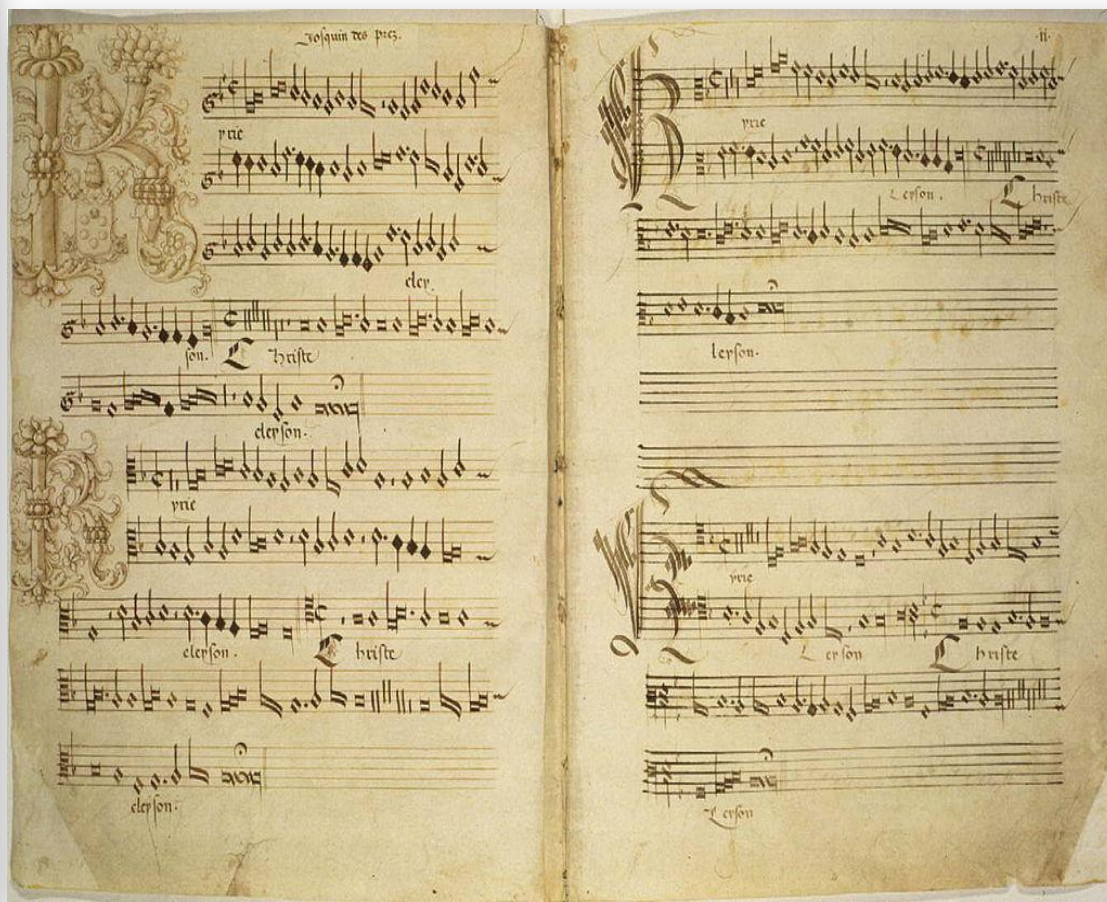 Josquin des prez.
yrie
eley
son. Christe
eleyson.
yrie
eleyson. Christe
eleyson.
.ii.
yrie
Leyson. Christe
leyson.
yrie
Leyson Christe
Leyson